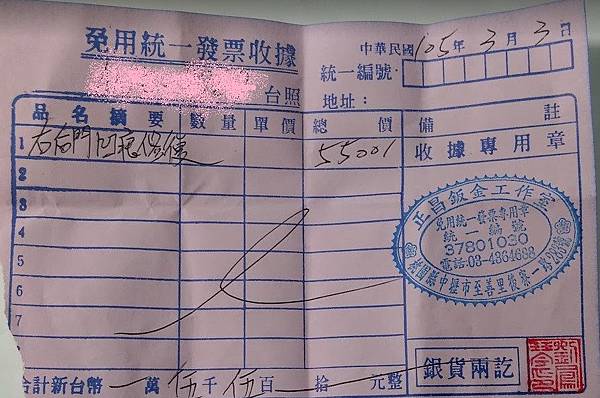 免用統一發票收據
中華民國105年3月3日
台照
統一編號：
地址：
品名摘要 數量 單價 總價 備註
1 右右門凹痕修復 5500
2
3
4
5
6
7
收據專用章
正昌鈑金工作室
免用統一發票專用章
統一編號
37801030
電話:03-4364688
桃園縣中壢市至善里後寮一路
合計新台幣 萬伍千伍百 拾 元整
銀貨兩訖